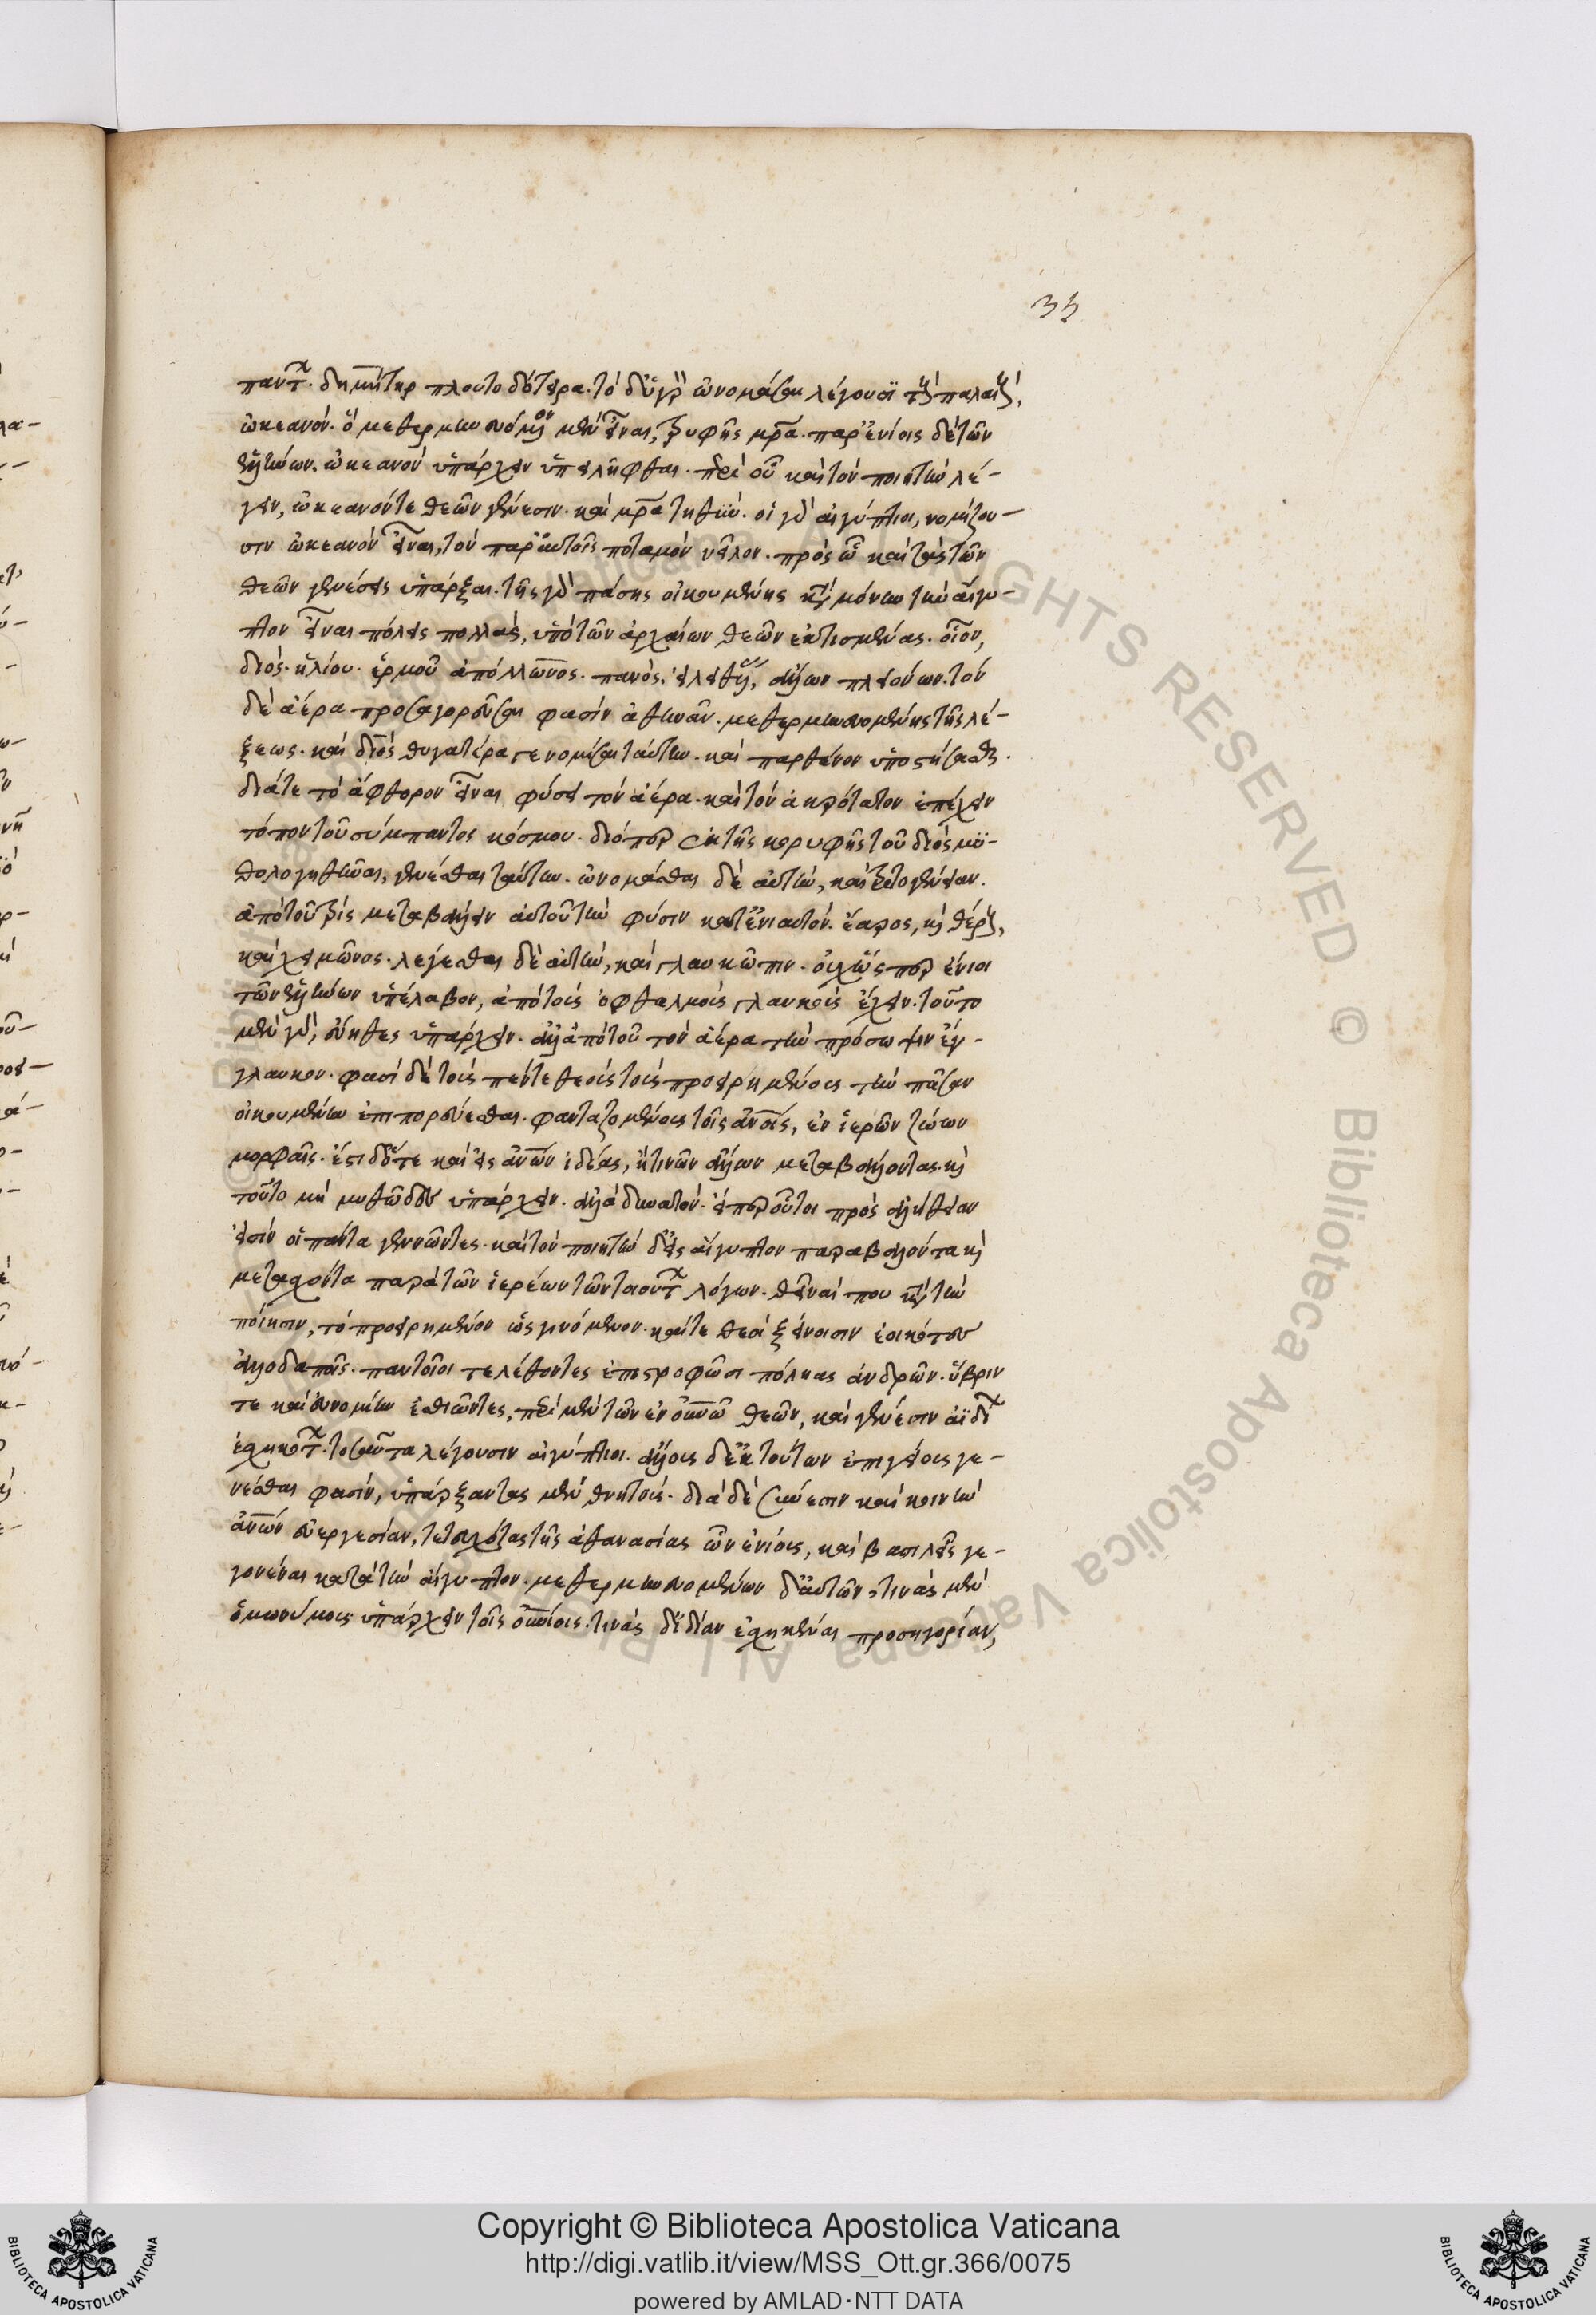 35
πάντων. δημήτηρ πλουτοδότειρα. τὸ δὲ ὑγρὸν ὠνομάσαι λέγουσι τοὺς παλαιοὺς,
ὠκεανόν. ὃ μεθερμηνευόμενον μὲν εἶναι, τρυφῆς μητέρα. παρ' ἐνίοις δὲ τῶν
ἑλλήνων. ὠκεανὸν ὑπάρχειν ὑπειλῆφθαι. περὶ οὗ καὶ τὸν ποιητὴν λέ-
γειν, ὠκεανόν τε θεῶν γένεσιν. καὶ μητέρα τηθύν. οἱ γὰρ αἰγύπτιοι, νομίζου-
σιν ὠκεανὸν εἶναι, τὸν παρ' αὐτοῖς ποταμὸν νεῖλον. πρὸς ᾧ καὶ τὰς τῶν
θεῶν γενέσεις ὑπάρξαι. τῆς γὰρ πάσης οἰκουμένης κατὰ μόνην τὴν αἴγυ-
πτον εἶναι πόλεις πολλὰς, ὑπὸ τῶν ἀρχαίων θεῶν ἐκτισμένας. οἷον,
διός. ἡλίου. ἑρμοῦ ἀπόλλωνος. πανός. εἰλειθυίας, ἄλλων πλειόνων. τὸν
δὲ ἀέρα προσαγορεῦσαι φασὶν ἀθηνᾶν. μεθερμηνευομένης τῆς λέ-
ξεως. καὶ διὸς θυγατέρα νομίσαι ταύτην. καὶ παρθένον ὑποστήσασθαι.
διά τε τὸ ἄφθορον εἶναι φύσει τὸν ἀέρα. καὶ τὸν ἀκρότατον ἐπέχειν
τόπον τοῦ σύμπαντος κόσμου. διόπερ ἐκ τῆς κορυφῆς τοῦ διὸς μυ-
θολογηθῆναι, γενέσθαι ταύτην. ὠνομάσθαι δὲ αὐτὴν, καὶ τριτογένειαν.
ἀπὸ τοῦ τρὶς μεταβάλλειν αὐτοῦ τὴν φύσιν κατ' ἐνιαυτόν. ἔαρος, καὶ θέρους,
καὶ χειμῶνος. λέγεσθαι δὲ αὐτὴν, καὶ γλαυκῶπιν. οὐχ ὥσπερ ἔνιοι
τῶν ἑλλήνων ὑπέλαβον, ἀπὸ τοῦς ὀφθαλμοὺς γλαυκοὺς ἔχειν. τοῦτο
μὲν γὰρ, εὔηθες ὑπάρχειν. ἀλλ' ἀπὸ τοῦ τὸν ἀέρα τὴν πρόσοψιν ἔγ-
γλαυκον. φασὶ δὲ τοὺς πέντε θεοὺς τοὺς προειρημένους τὴν πᾶσαν
οἰκουμένην ἐπιπορεύεσθαι. φανταζομένους τοῖς ἀνθρώποις, ἐν ἱερῶν ζώων
μορφαῖς. ἔστι δ' ὅτε καὶ εἰς ἀνθρώπων ἰδέας, ἤ τινων ἄλλων μεταβάλλοντας. καὶ
τοῦτο μὴ μυθῶδες ὑπάρχειν. ἀλλὰ δυνατόν. εἴπερ οὗτοι πρὸς ἀλήθειαν
εἰσὶν οἱ πάντα γεννῶντες. καὶ τὸν ποιητὴν δ' εἰς αἴγυπτον παραβαλόντα καὶ
μετασχόντα παρὰ τῶν ἱερέων τῶν τοιούτων λόγων. θεῖναί που κατὰ τὴν
ποίησιν, τὸ προειρημένον ὡς γινόμενον. καί τε θεοὶ ξείνοισιν ἐοικότες
ἀλλοδαποῖς. παντοῖοι τελέθοντες ἐπιστροφῶσι πόληας ἀνδρῶν. ὕβριν
τε καὶ εὐνομίην ἐσθιῶντες, περὶ μὲν τῶν ἐν οὐρανῷ θεῶν, καὶ γένεσιν ἀίδιον
ἐσχηκότων. τοσαῦτα λέγουσιν αἰγύπτιοι. ἄλλους δ' ἐκ τούτων ἐπιγείους γε-
νέσθαι φασὶν, ὑπάρξαντας μὲν θνητούς. διὰ δὲ σύνεσιν καὶ κοινὴν
ἀνθρώπων εὐεργεσίαν, τετυχότας τῆς ἀθανασίας ὧν ἐνίους, καὶ βασιλεῖς γε-
γονέναι κατὰ τὴν αἴγυπτον. μεθερμηνευομένων δ' αὐτῶν, τινὰς μὲν
ὁμωνύμους ὑπάρχειν τοῖς οὐρανίοις. τινὰς δ' ἰδίαν ἐσχηκέναι προσηγορίαν,
Copyright © Biblioteca Apostolica Vaticana
http://digi.vatlib.it/view/MSS_Ott.gr.366/0075
powered by AMLAD·NTT DATA